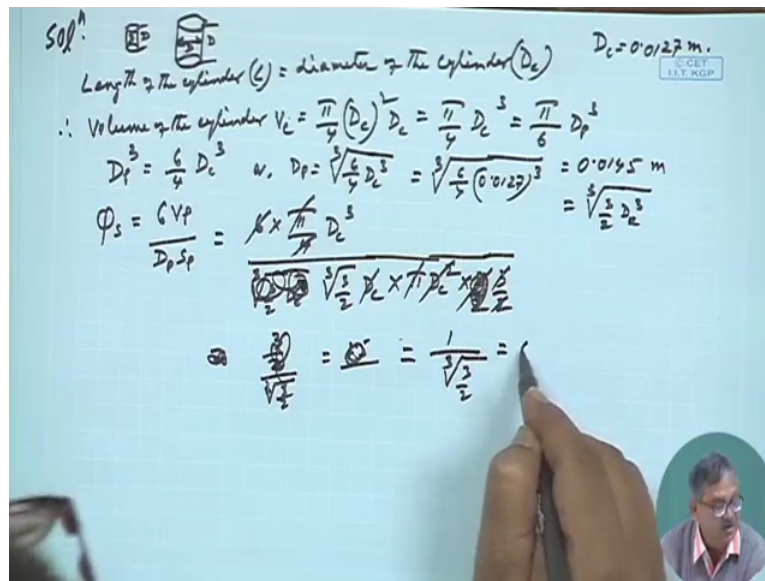 Solⁿ. D D D_c = 0.0127 m.
© CET
I.I.T. KGP
Length of the cylinder (L) = diameter of the cylinder (D_c)
∴ Volume of the cylinder V_c = π/4 (D_c)² D_c = π/4 D_c³ = π/6 D_p³
D_p³ = 6/4 D_c³ or, D_p = ∛(6/4 D_c³) = ∛(6/4 (0.0127)³) = 0.0145 m
= ∛(3/2 D_c³)
φ_s = 6 V_p / D_p S_p = 6 × π/4 D_c³ / ∛(3/2) D_c × π D_c² × 3/2
= 1/∛(3/2) =